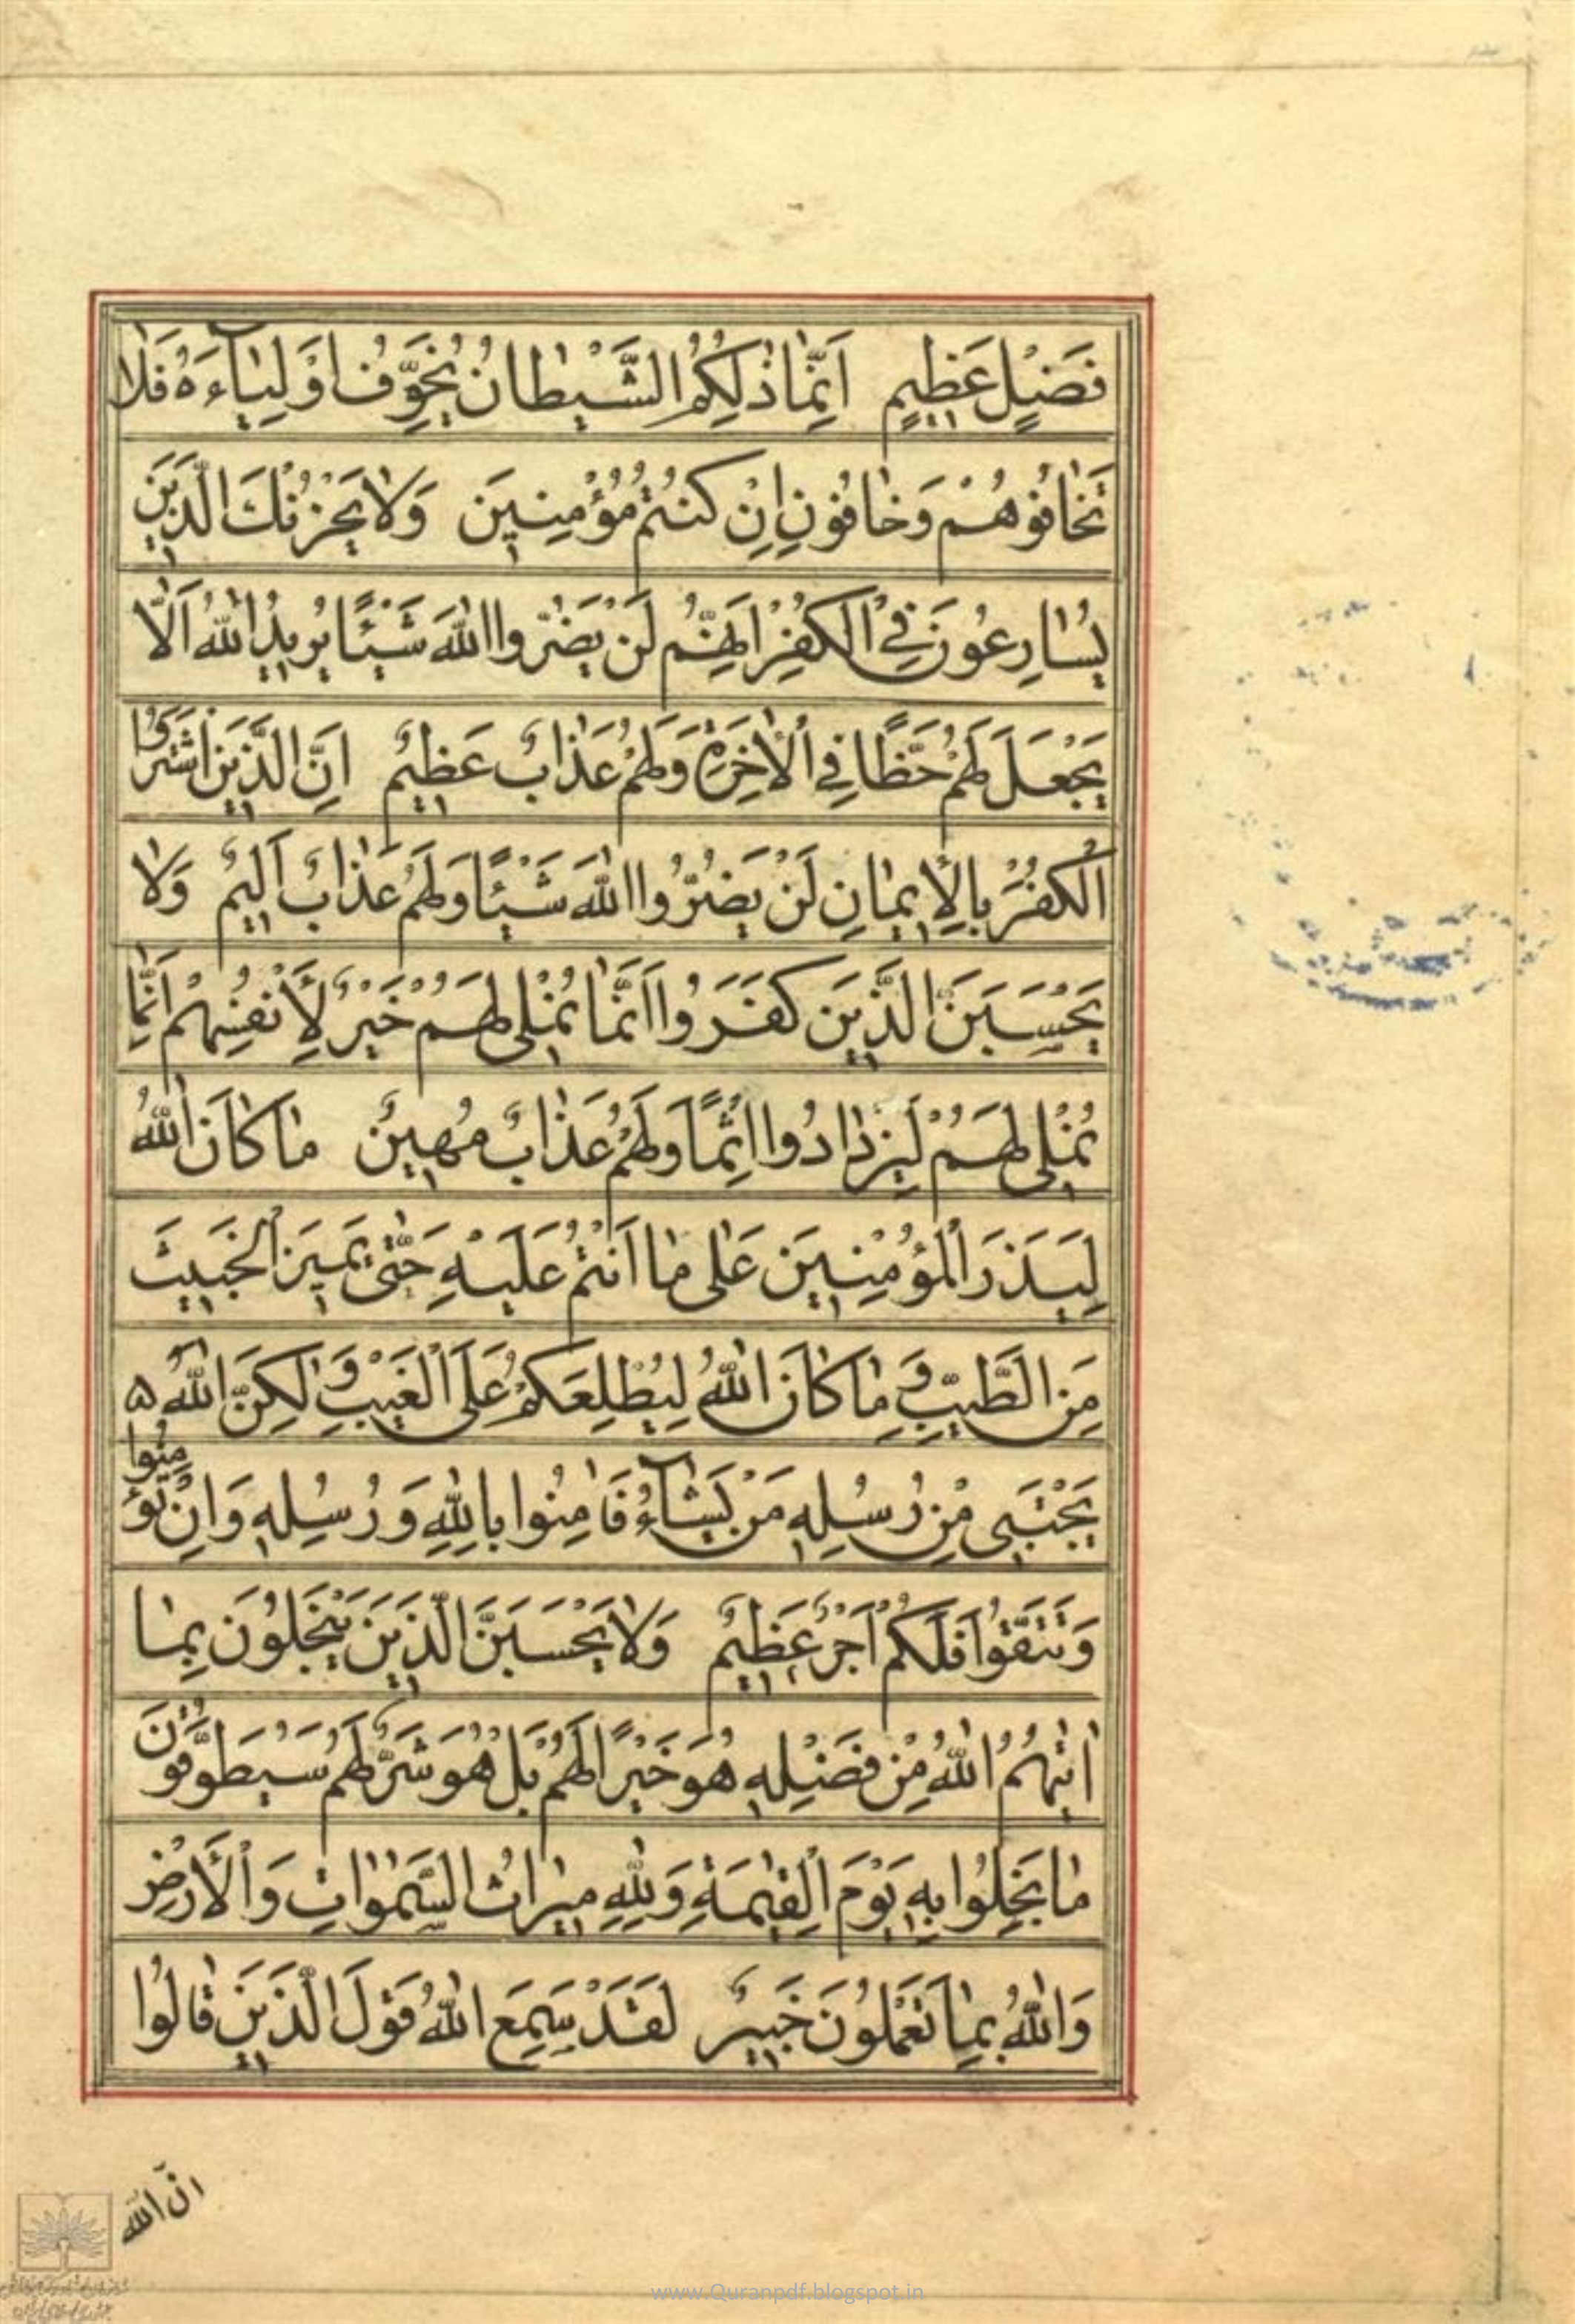 فَضْلٍ عَظِيمٍ اِنَّمٰا ذٰلِكُمُ الشَّيْطٰانُ يُخَوِّفُ اَوْلِيٰاۤءَهُ فَلٰا
تَخٰافُوهُمْ وَخٰافُونِ اِنْ كُنْتُمْ مُؤْمِنِينَ وَلٰا يَحْزُنْكَ الَّذِينَ
يُسٰارِعُونَ فِي الْكُفْرِ اِنَّهُمْ لَنْ يَضُرُّوا اللّٰهَ شَيْئًا يُرِيدُ اللّٰهُ اَلّٰا
يَجْعَلَ لَهُمْ حَظًّا فِي الْاٰخِرَةِ وَلَهُمْ عَذٰابٌ عَظِيمٌ اِنَّ الَّذِينَ اشْتَرَوُا
الْكُفْرَ بِالْاِيمٰانِ لَنْ يَضُرُّوا اللّٰهَ شَيْئًا وَلَهُمْ عَذٰابٌ اَلِيمٌ وَلٰا
يَحْسَبَنَّ الَّذِينَ كَفَرُوا اَنَّمٰا نُمْلِي لَهُمْ خَيْرٌ لِأَنْفُسِهِمْ اِنَّمٰا
نُمْلِي لَهُمْ لِيَزْدٰادُوا اِثْمًا وَلَهُمْ عَذٰابٌ مُهِينٌ مٰا كٰانَ اللّٰهُ
لِيَذَرَ الْمُؤْمِنِينَ عَلٰى مٰا اَنْتُمْ عَلَيْهِ حَتّٰى يَمِيزَ الْخَبِيثَ
مِنَ الطَّيِّبِ وَمٰا كٰانَ اللّٰهُ لِيُطْلِعَكُمْ عَلَى الْغَيْبِ وَلٰكِنَّ اللّٰهَ ۵
يَجْتَبِي مِنْ رُسُلِهِ مَنْ يَشٰاۤءُ فَاٰمِنُوا بِاللّٰهِ وَرُسُلِهِ وَاِنْ تُؤْمِنُوا
وَتَتَّقُوا فَلَكُمْ اَجْرٌ عَظِيمٌ وَلٰا يَحْسَبَنَّ الَّذِينَ يَبْخَلُونَ بِمٰا
اٰتٰيهُمُ اللّٰهُ مِنْ فَضْلِهِ هُوَ خَيْرًا لَهُمْ بَلْ هُوَ شَرٌّ لَهُمْ سَيُطَوَّقُونَ
مٰا بَخِلُوا بِهِ يَوْمَ الْقِيٰمَةِ وَلِلّٰهِ مِيرٰاثُ السَّمٰوٰاتِ وَالْأَرْضِ
وَاللّٰهُ بِمٰا تَعْمَلُونَ خَبِيرٌ لَقَدْ سَمِعَ اللّٰهُ قَوْلَ الَّذِينَ قٰالُوا
انّ اللّٰه
www.Quranpdf.blogspot.in